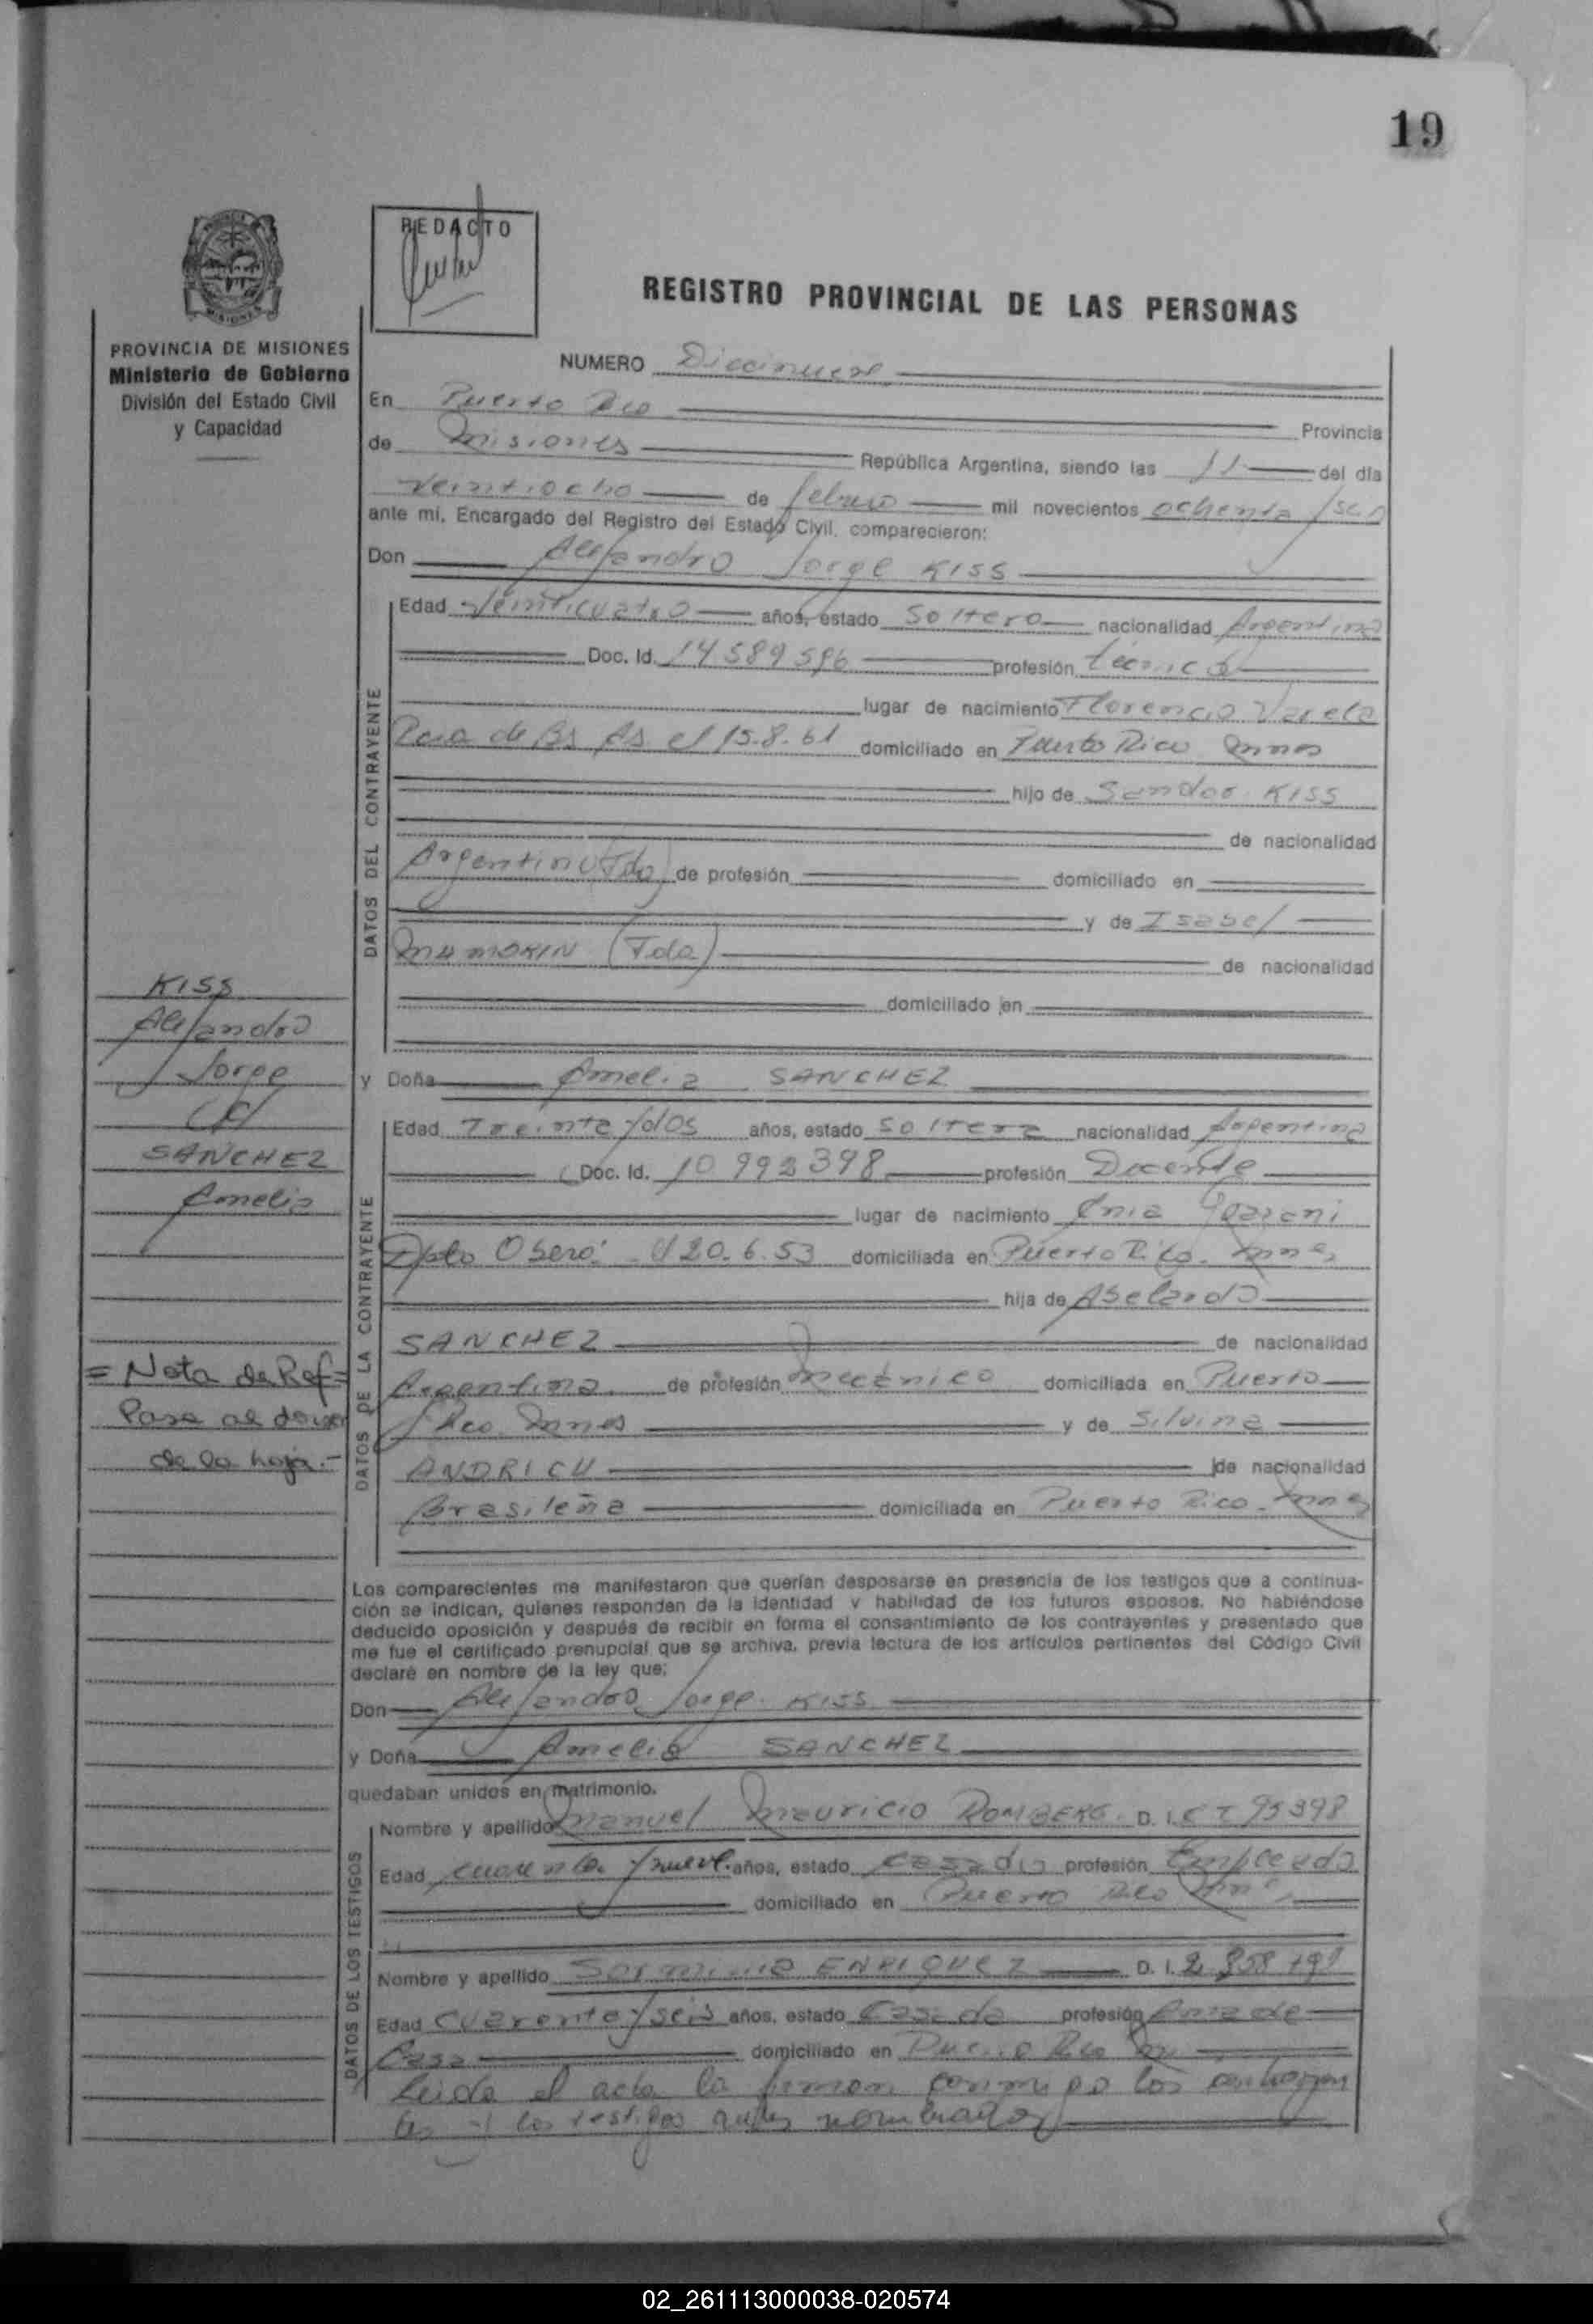 19
REDACTO
REGISTRO PROVINCIAL DE LAS PERSONAS
PROVINCIA DE MISIONES
Ministerio de Gobierno
División del Estado Civil
y Capacidad
NUMERO Diecinueve
En Puerto Rico
Provincia
de Misiones República Argentina, siendo las 11 del día
veintiocho de febrero mil novecientos ochenta y seis
ante mí, Encargado del Registro del Estado Civil, comparecieron:
Don Alejandro Jorge KISS
DATOS DEL CONTRAYENTE
Edad Veinticuatro años, estado Soltero nacionalidad Argentina
Doc. Id. 14 589 596 profesión técnico
lugar de nacimiento Florencio Varela
Pcia de Bs As el 15.8.61 domiciliado en Puerto Rico Mnes
hijo de Sandor KISS
de nacionalidad
Argentino (Fdo) de profesión domiciliado en
y de Isabel
(Fda) de nacionalidad
domiciliado en
KISS
Alejandro
Jorge
c/
SANCHEZ
Amelia
y Doña Amelia SANCHEZ
DATOS DE LA CONTRAYENTE
Edad Treinta y dos años, estado Soltera nacionalidad Argentina
Doc. Id. 10 992 398 profesión Docente
lugar de nacimiento Cnia Guarani
Dpto Oberá el 20.6.53 domiciliada en Puerto Rico Mnes
hija de Abelardo
SANCHEZ de nacionalidad
Argentina de profesión Mecánico domiciliada en Puerto
Rico Mnes y de Silvina
ANDRICU de nacionalidad
Brasileña domiciliada en Puerto Rico Mnes
= Nota de Ref =
Pasa al dorso
de la hoja.-
Los comparecientes me manifestaron que querían desposarse en presencia de los testigos que a continua-
ción se indican, quienes responden de la identidad y habilidad de los futuros esposos. No habiéndose
deducido oposición y después de recibir en forma el consentimiento de los contrayentes y presentado que
me fue el certificado prenupcial que se archiva, previa lectura de los artículos pertinentes del Código Civil
declaré en nombre de la ley que:
Don Alejandro Jorge KISS
y Doña Amelia SANCHEZ
quedaban unidos en matrimonio.
DATOS DE LOS TESTIGOS
Nombre y apellido Manuel Mauricio ROMBERG D. I. 95398
Edad cuarenta y nueve años, estado casado profesión Empleado
domiciliado en Puerto Rico Mnes
Nombre y apellido ENRIQUEZ D. I.
Edad cuarenta y seis años, estado Casada profesión Ama de
Casa domiciliado en Puerto Rico
Leida el acta la firman conmigo los contrayen
tes y los testigos antes nombrados
02_261113000038-020574